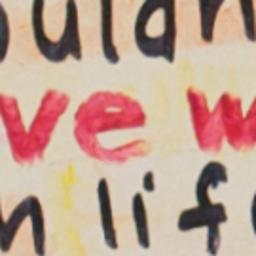 ouldn
ve w
n life